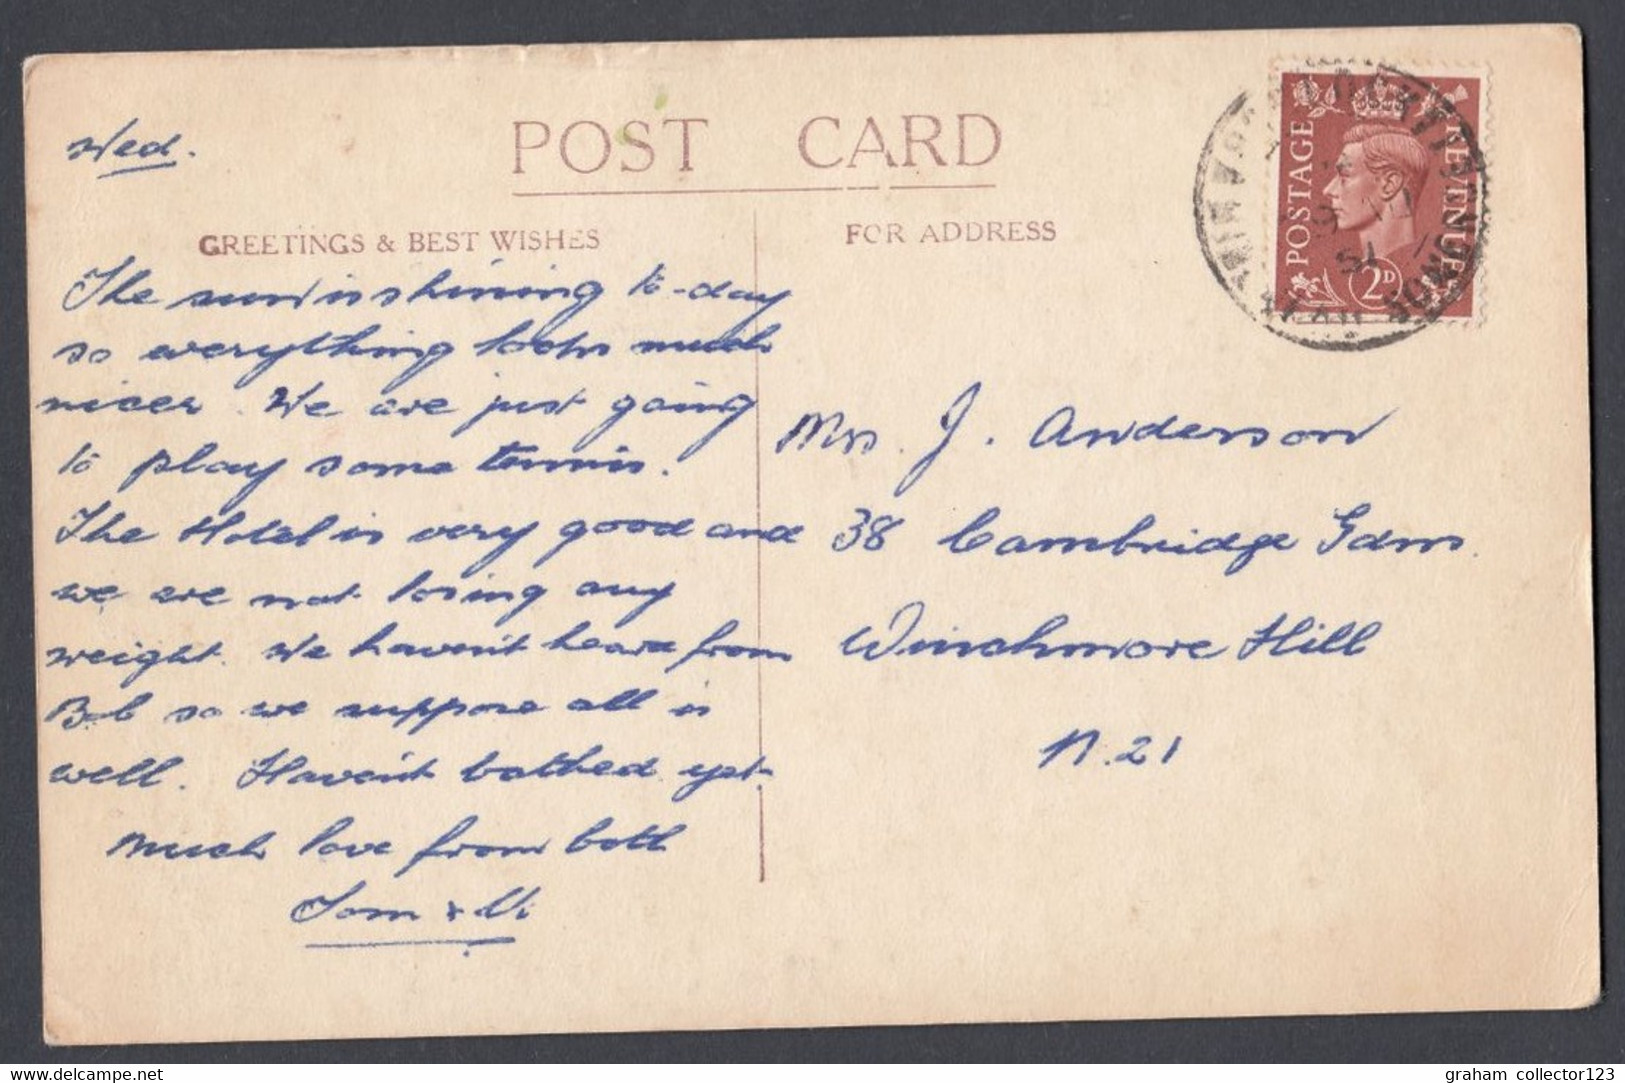 POST CARD
Wed.
GREETINGS & BEST WISHES
The sun is shining to-day
so everything looks much
nicer. We are just going
to play some tennis.
The Hotel is very good and
we are not losing any
weight. We haven't heard from
Bob so we suppose all is
well. Haven't bathed yet.
Much love from both
Tom & Vi
FOR ADDRESS
Mrs. J. Anderson
38 Cambridge Gdns.
Winchmore Hill
N.21
POSTAGE
REVENUE
2D
51
graham collector123
delcampe.net